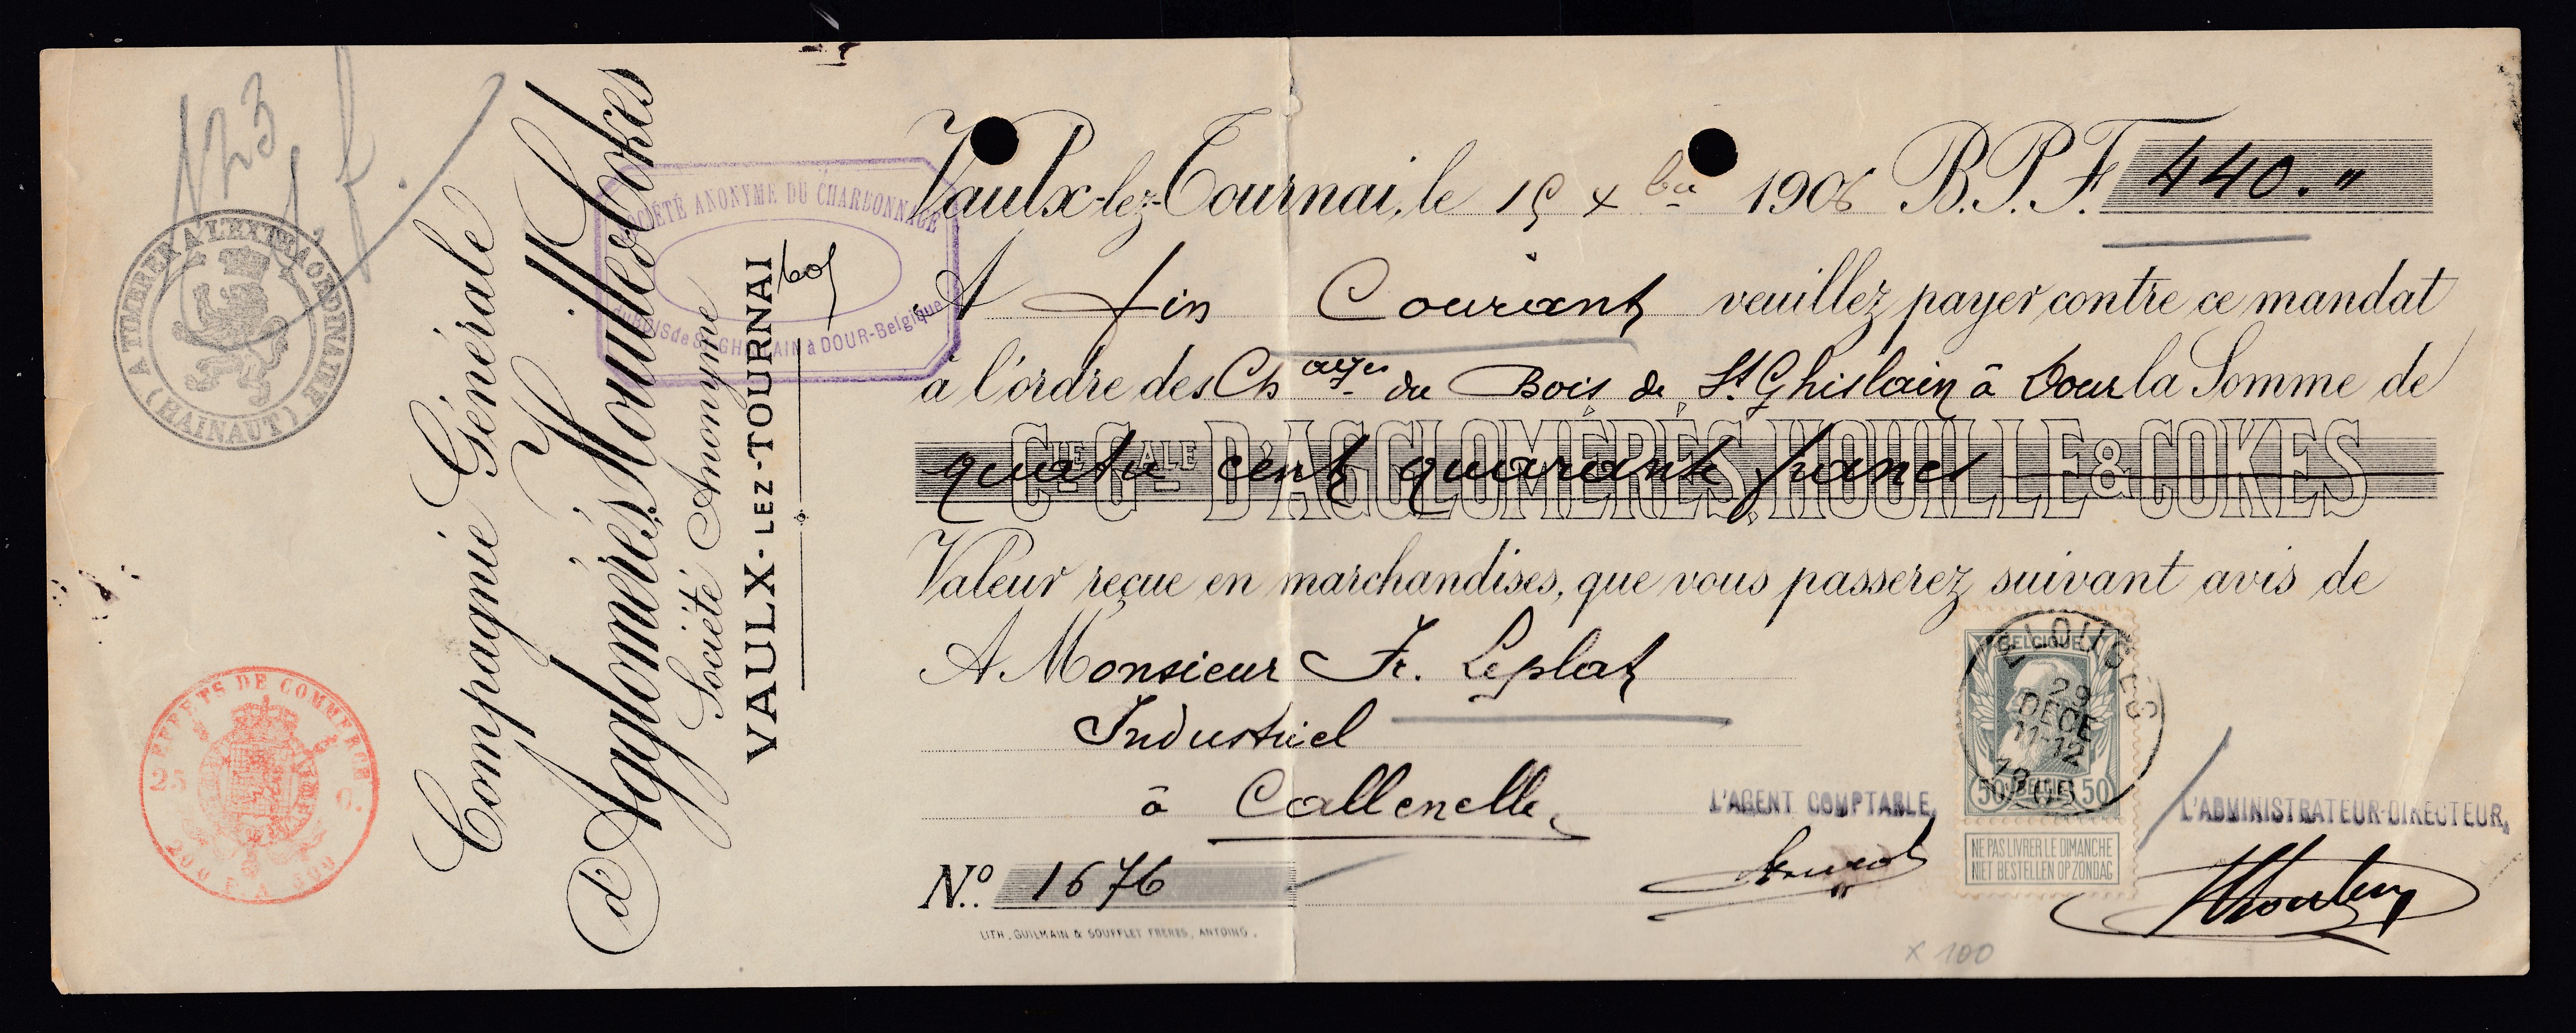 N23
A TIMBRER A L'EXTRAORDINAIRE
(HAINAUT)
EFFETS DE COMMERCE
25 C.
200 F. A 500
Compagnie Générale
d'Agglomérés, Houille & Cokes
Société Anonyme
VAULX-LEZ-TOURNAI
SOCIÉTÉ ANONYME DU CHARBONNAGE
du BOIS de St GHISLAIN à DOUR-Belgique
Vaulx-lez-Tournai, le 15 Xbre 1905 B.P.F. 440."
A fin Courant veuillez payer contre ce mandat
à l'ordre des Chages du Bois de St Ghislain à Dour la Somme de
CIE GALE D'AGGLOMÉRÉS, HOUILLE & COKES
quatre cent quarante francs
Valeur reçue en marchandises, que vous passerez suivant avis de
A Monsieur Fr. Leplat
Industriel
à Callenelle
No. 1676
LITH. GUILMAIN & SOUFFLET FRERES, ANTOING.
L'AGENT COMPTABLE,
L'ADMINISTRATEUR-DIRECTEUR,
BELGIQUE
50 BELGIË 50
NE PAS LIVRER LE DIMANCHE
NIET BESTELLEN OP ZONDAG
ELOUGES
29
DECE
11-12
1905
x 100